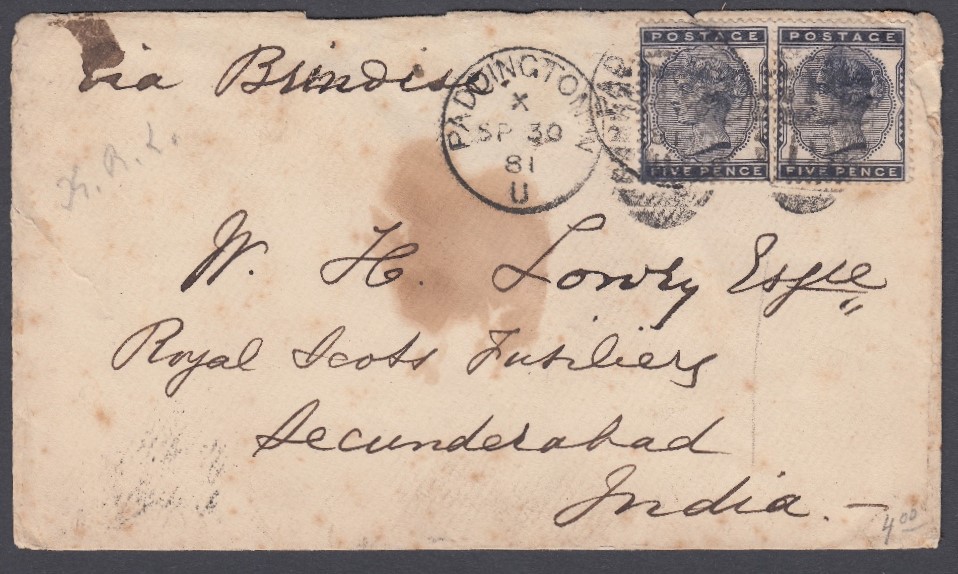 via Brindisi
PADDINGTON W
X
SP 30
81
U
POSTAGE
FIVE PENCE
POSTAGE
FIVE PENCE
W. H. Lowry Esqre
Royal Scots Fusiliers
Secunderabad
India.—
4.00